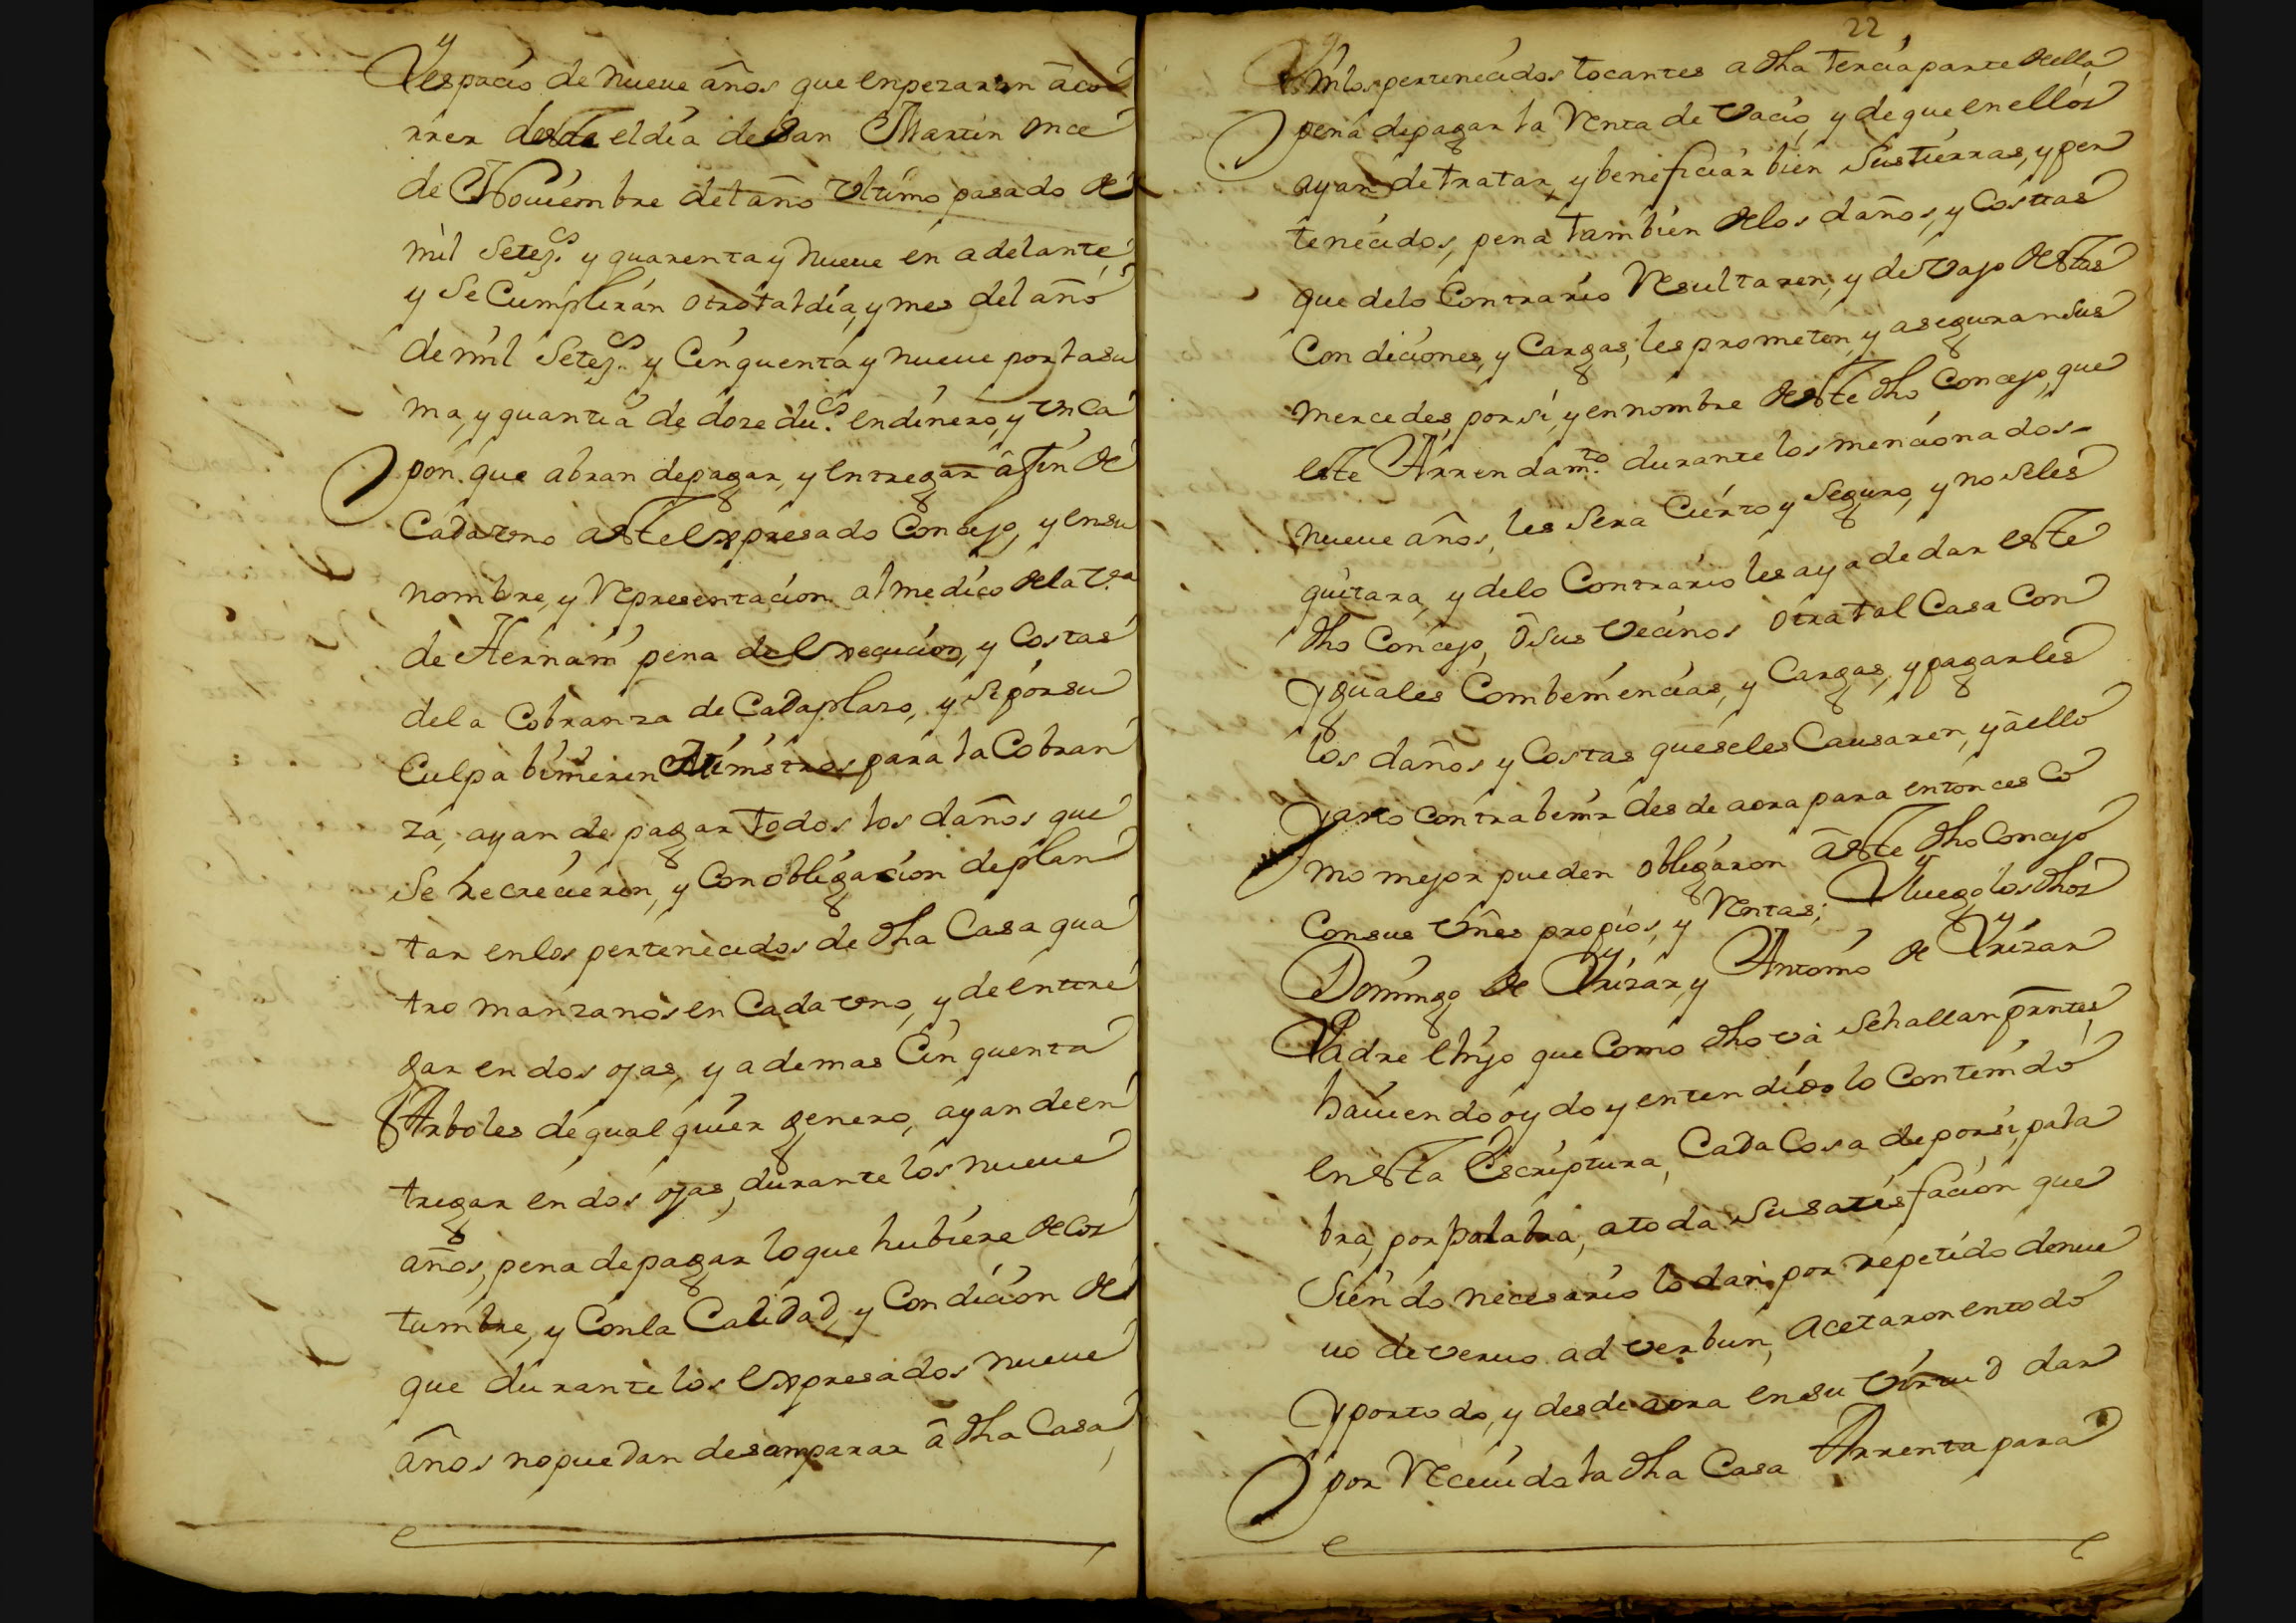 Y espacio de nueue años que enpezaron â co
rrer desde el dia de San Martin once
de Nouiembre del año vltimo pasado de
mil Setez.s y quarenta y nueue en adelante,
y Se Cumplirán otro tal dia, y mes del año
de mil Setez.s y Cinquenta y nueue por la su
ma, y quantia de doze du.s en dinero, y vn ca
pon que abran de pagar, y entregar â fin de
Cada vno a este expresado Concejo, y en su
nombre, y Representacion al medico de la v.a
de Hernani pena de execucion, y Costas
de la Cobranza de Cada plazo, y Si por su
Culpa binieren Ministros para la Cobran
za, ayan de pagar todos los daños que
Se recrecieren, y Con obligacion de plan
tar en los pertenecidos de dha Casa qua
tro manzanos en Cada vno, y de entre
gar en dos ojas, y ademas Cinquenta
Arboles de qualquier genero, ayan de en
tregar en dos ojas, durante los nueue
años, pena de pagar lo que hubiere de Cos
tumbre, y Con la Calidad, y Condicion de
que durante los expresados nueue
años no puedan desamparar â dha Casa,
22
Ni los pertenecidos tocantes a dha tercia parte de ella
pena de pagar la Renta de vacio, y de que en ellos
ayan de tratar, y beneficiar bien Sus tierras, y per
tenecidos, pena tambien de los daños, y Costtas
que de lo Contrario Resultaren, y devajo de estas
Condiciones, y Cargas, les prometen, y aseguran Sus
mercedes, por si, y en nombre de este dho Concejo, que
este Arrendam.to durante los mencionados
nueue años, les Sera Cierto y Seguro, y no Se les
quitara, y de lo Contrario les aya de dar este
dho Concejo, ô Sus vecinos otra tal Casa Con
Yguales Combeniencias, y Cargas, y pagarles
los daños y Costas que se les Causaren, y â ello
y a no contrabenir desde aora para entonces Co
mo mejor pueden obligaron â este dho Concejo
Con sus vienes propios, y Rentas; Y luego los dhos
Domingo de Yrizar, y Antonio de Yrizar
Padre e hijo que Como dho va Se hallan presentes
hauiendo oydo y entendido lo Contenido
en esta Escriptura, Cada Cosa de por si, pala
bra, por palabra, a toda Su satisfacion que
Siendo necesario lo dan por repetido denue
uo de veruo ad verbun, acetaron en todo
y por todo, y desde aora en su virtud dan
por Reciuida la dha Casa Arrenta para